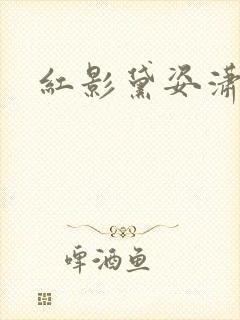 红影黛姿潇
啤酒鱼